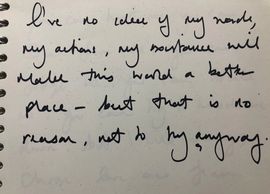 I've no idea if my words,
my actions, my existence will
make this world a better
place – but that is no
reason, not to try anyway.